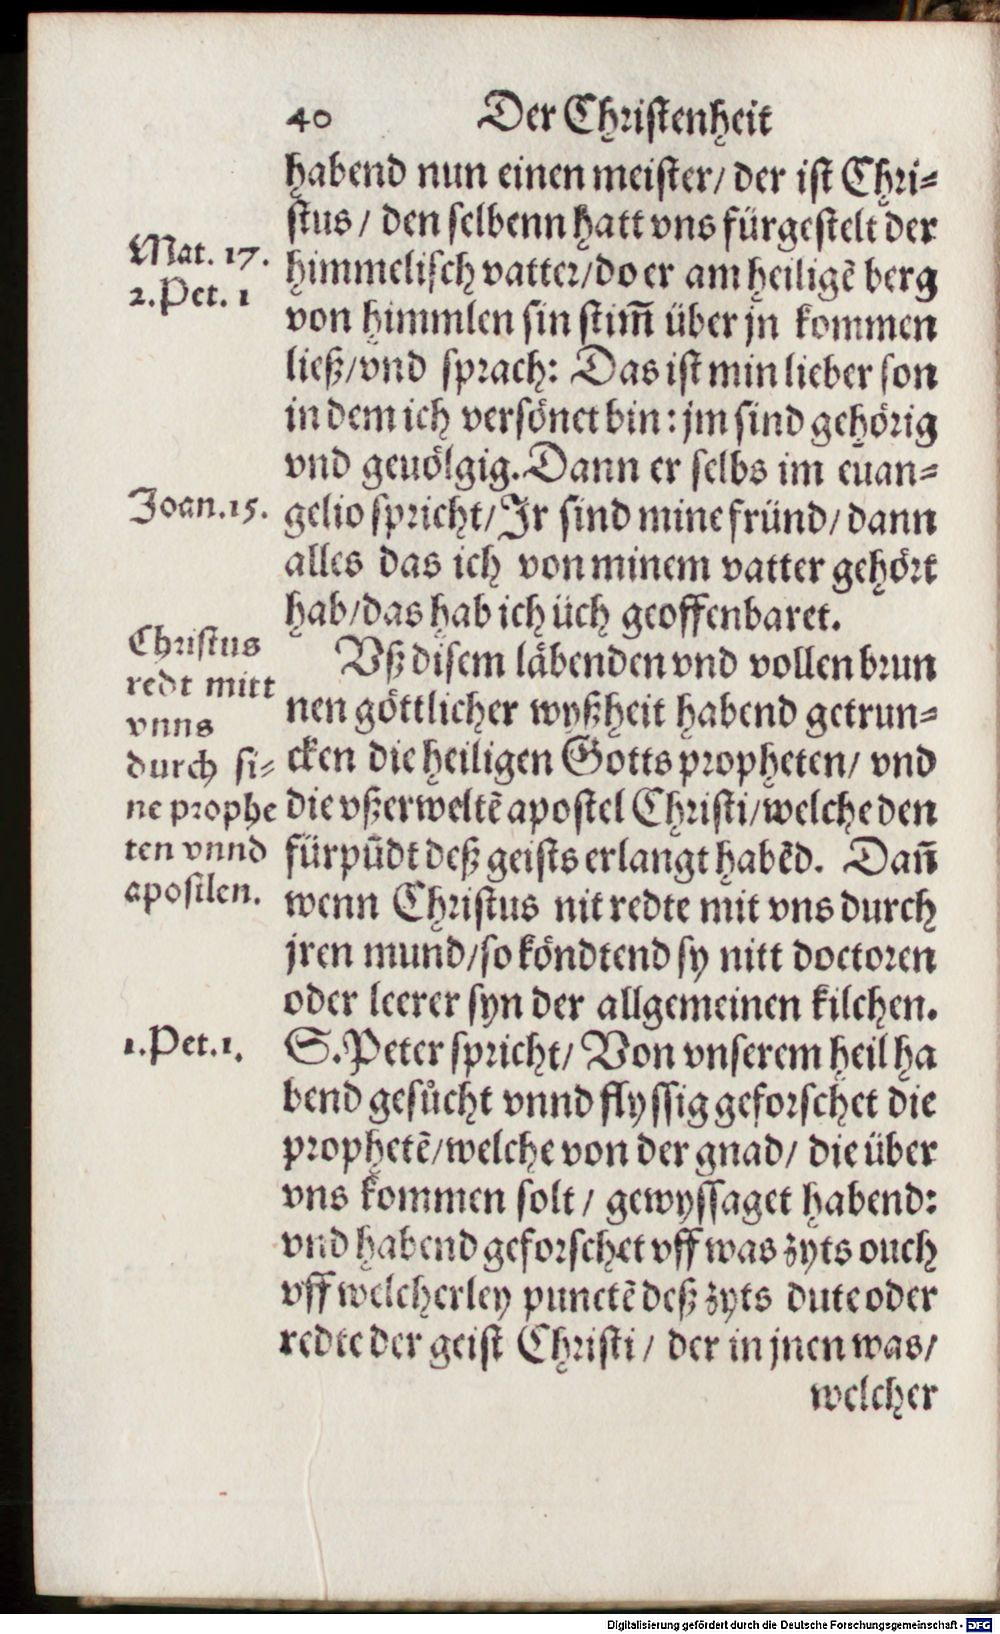 40 Der Christenheit
habend nun einen meister/ der ist Chri⸗
stus/ den selbenn hatt vns fürgestelt der
Mat. 17.
himmelisch vatter/ do er am heiligē berg
2. Pet. 1
von himmlen sin stim̄ über jn kommen
ließ/ vnd sprach: Das ist min lieber son
in dem ich versönet bin: jm sind gehörig
vnd geuölgig. Dann er selbs im euan⸗
Joan. 15.
gelio spricht/ Jr sind mine fründ/ dann
alles das ich von minem vatter gehört
hab/ das hab ich üch geoffenbaret.
Christus
redt mitt
vnns
durch si⸗
ne prophe
ten vnnd
apostlen.
Vß disem läbenden vnd vollen brun
nen göttlicher wyßheit habend getrun⸗
cken die heiligen Gotts propheten/ vnd
die vßerweltē apostel Christi/ welche den
fürpūdt deß geists erlangt habēd. Dan̄
wenn Christus nit redte mit vns durch
jren mund/ so köndtend sy nitt doctoren
oder leerer syn der allgemeinen kilchen.
1. Pet. 1.
S. Peter spricht/ Von vnserem heil ha
bend gesůcht vnnd flyssig geforschet die
prophetē/ welche von der gnad/ die über
vns kommen solt/ gewyssaget habend:
vnd habend geforschet vff was zyts ouch
vff welcherley punctē deß zyts dute oder
redte der geist Christi/ der in jnen was/
welcher
Digitalisierung gefördert durch die Deutsche Forschungsgemeinschaft - DFG